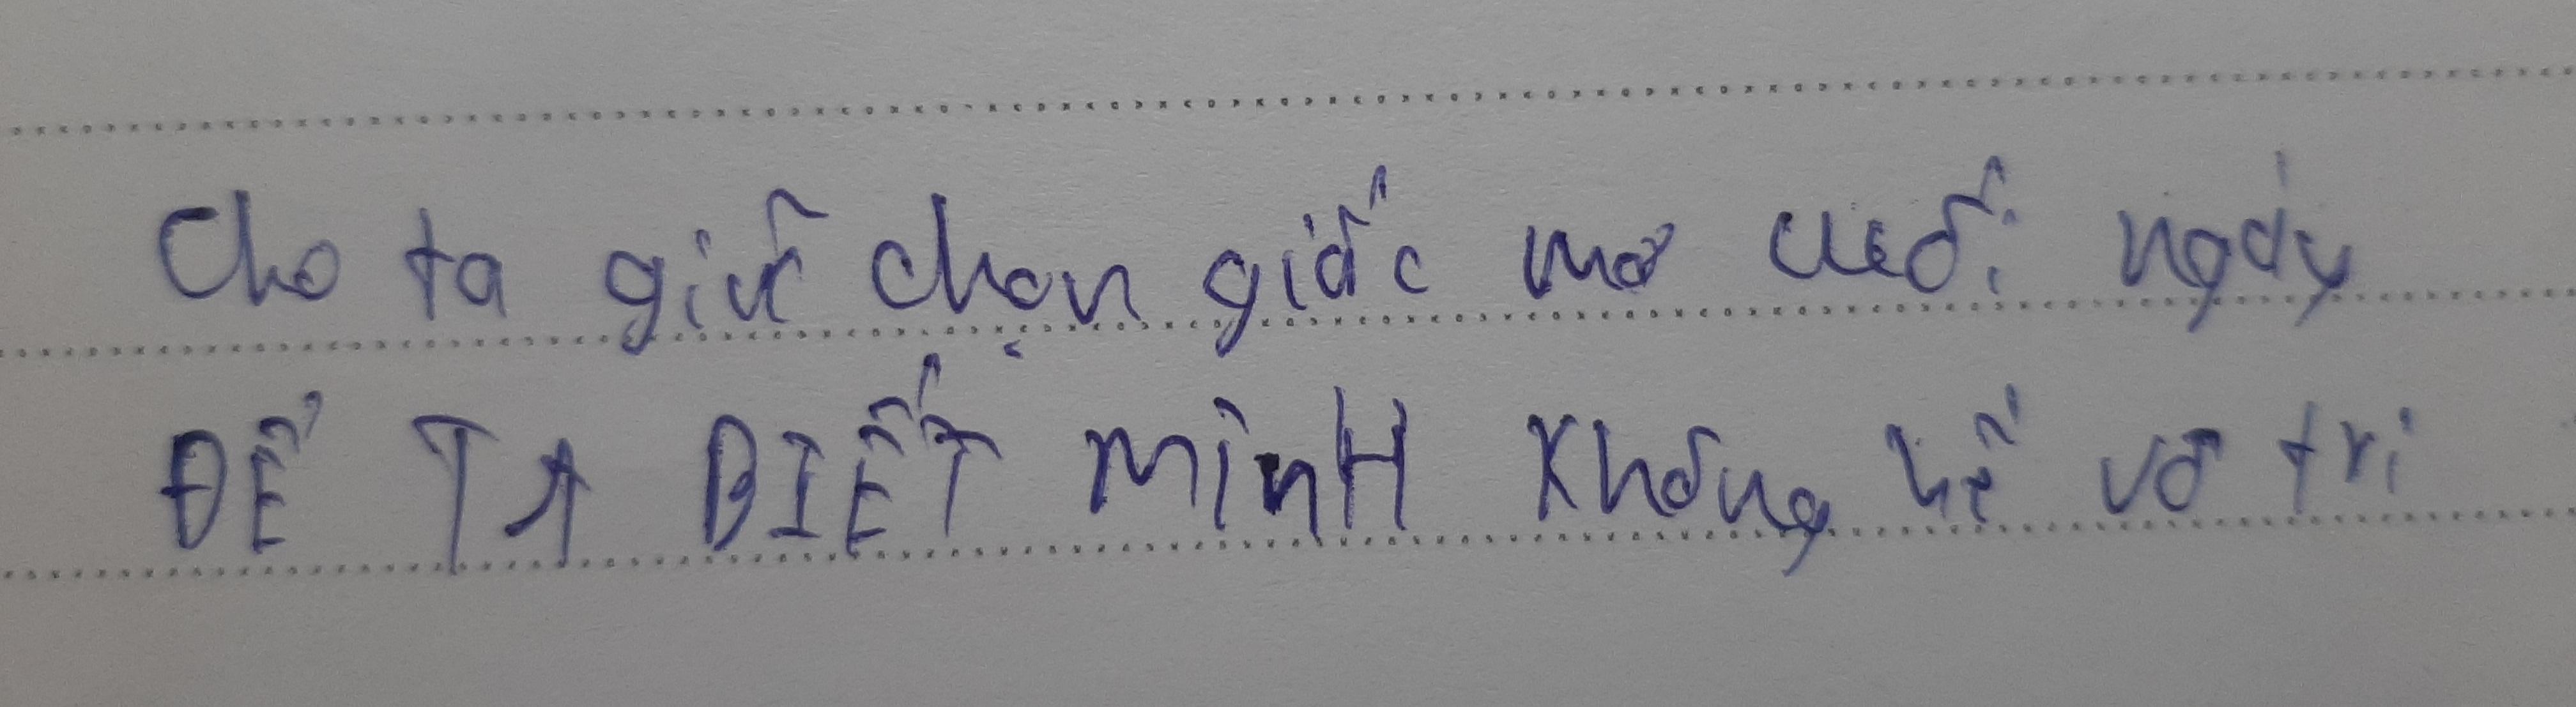 Cho ta giữ chọn giấc mơ cuối ngày
ĐỂ TA BIẾT mìnH Không hề vô tri